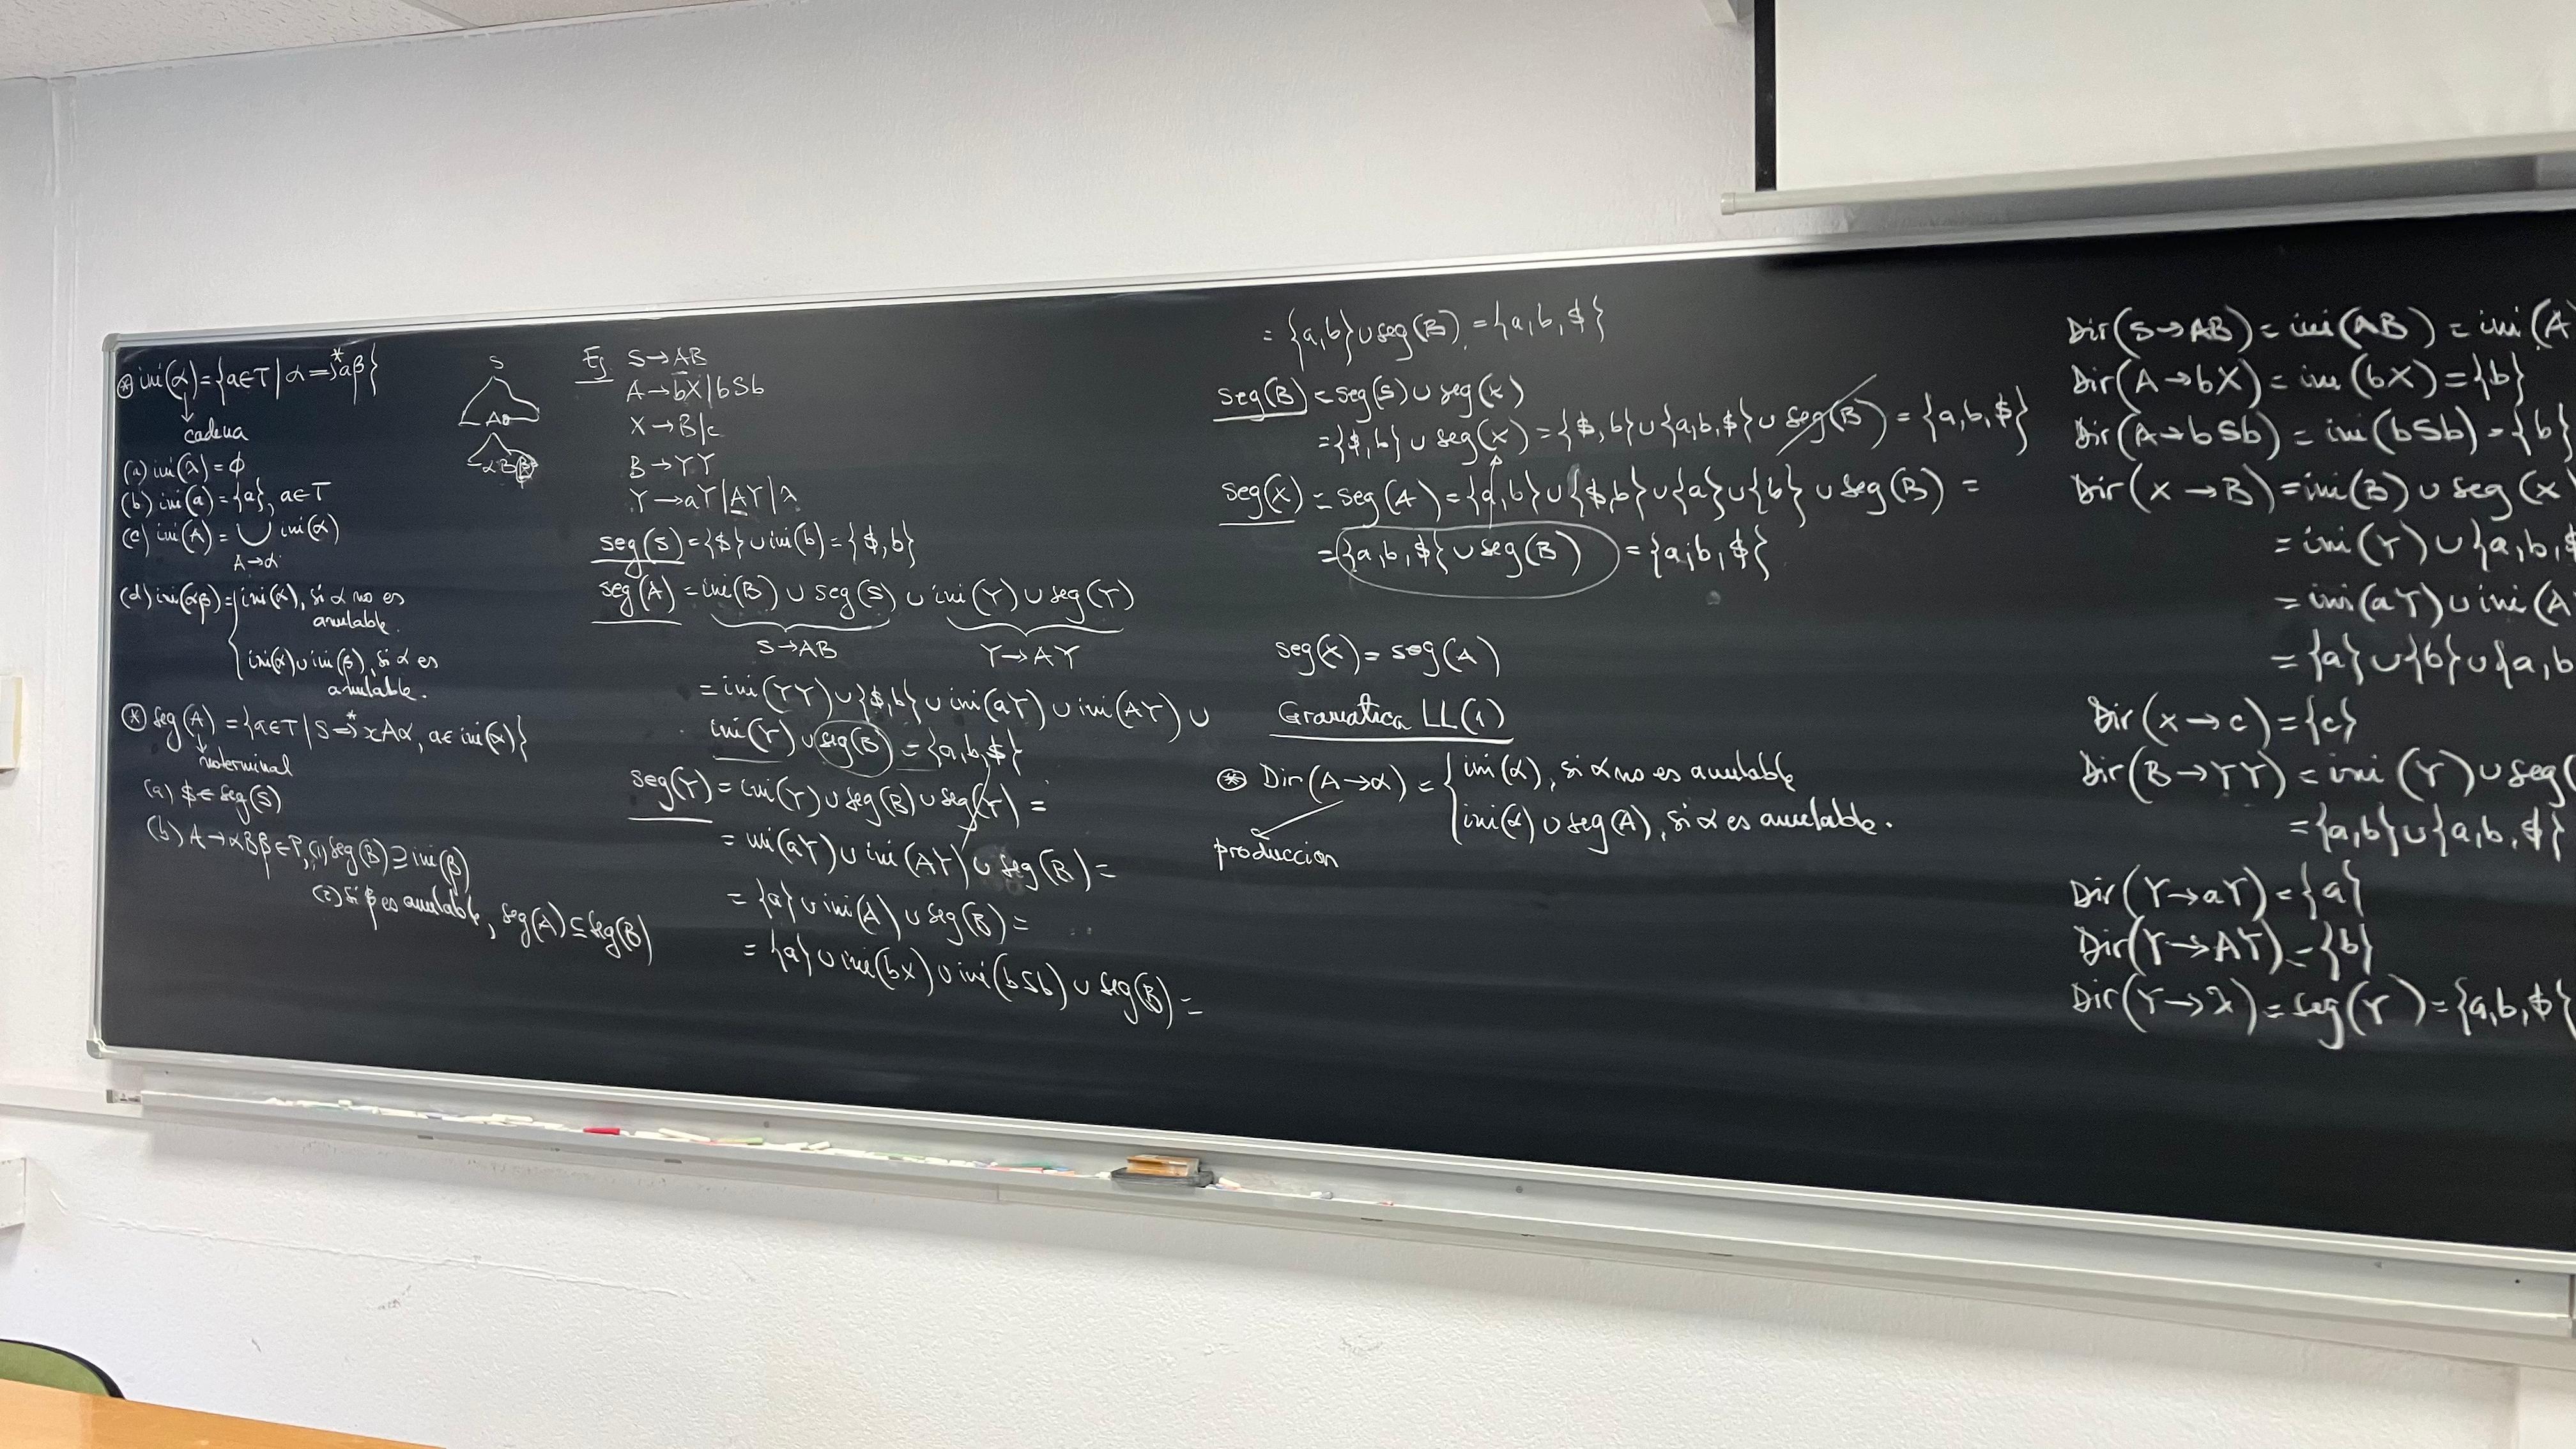 ⊛ ini(α) = {a∈T | α ⇒* aβ}
cadena
(a) ini(λ) = ϕ
(b) ini(a) = {a}, a∈T
(c) ini(A) = ∪ ini(α)
A→α
(d) ini(αβ) = { ini(α), si α no es
anulable.
ini(α) ∪ ini(β), si α es
anulable.
⊛ seg(A) = {a∈T | S ⇒* xAα, a∈ ini(α)}
noterminal
(a) $ ∈ seg(S)
(b) A → αBβ ∈ P, (1) seg(B) ⊇ ini(β)
(2) si β es anulable, seg(A) ⊆ seg(B)
S
Aa
αBβ
Ej S → AB
A → bX | bSb
X → B|c
B → YY
Y → aY | AY | λ
seg(S) = {$} ∪ ini(b) = {$,b}
seg(A) = ini(B) ∪ seg(S) ∪ ini(Y) ∪ seg(Y)
S→AB Y→AY
= ini(YY) ∪ {$,b} ∪ ini(aY) ∪ ini(AY) ∪
ini(Y) ∪ seg(B) = {a,b,$}
seg(Y) = ini(Y) ∪ seg(B) ∪ seg(Y) =
= ini(aY) ∪ ini(AY) ∪ seg(B) =
= {a} ∪ ini(A) ∪ seg(B) =
= {a} ∪ ini(bX) ∪ ini(bSb) ∪ seg(B) =
= {a,b} ∪ seg(B) = {a,b,$}
seg(B) = seg(S) ∪ seg(X)
= {$,b} ∪ seg(X) = {$,b} ∪ {a,b,$} ∪ seg(B) = {a,b,$}
seg(X) = seg(A) = {a,b} ∪ {$,b} ∪ {a} ∪ {b} ∪ seg(B) =
= {a,b,$} ∪ seg(B) = {a,b,$}
seg(X) = seg(A)
Gramatica LL(1)
⊛ Dir(A→α) = { ini(α), si α no es anulable
ini(α) ∪ seg(A), si α es anulable.
produccion
Dir(S→AB) = ini(AB) = ini(A
Dir(A→bX) = ini(bX) = {b}
Dir(A→bSb) = ini(bSb) = {b}
Dir(X→B) = ini(B) ∪ seg(X
= ini(Y) ∪ {a,b,$
= ini(aY) ∪ ini(A
= {a} ∪ {b} ∪ {a,b
Dir(X→c) = {c}
Dir(B→YY) = ini(Y) ∪ seg(
= {a,b} ∪ {a,b,$}
Dir(Y→aY) = {a}
Dir(Y→AY) = {b}
Dir(Y→λ) = seg(Y) = {a,b,$}